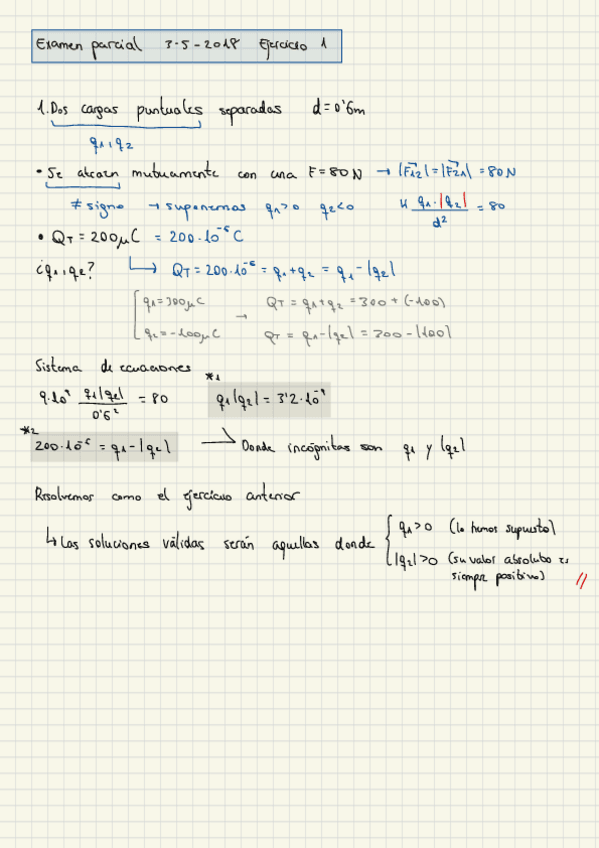 Examen parcial 3-5-2018 Ejercicio 1
1. Dos cargas puntuales separadas d=0'6m
q1, q2
• Se atraen mutuamente con una F=80N → |F12|=|F21| = 80N
≠ signo → suponemos q1>0 q2<0 K q1·|q2| / d² = 80
• QT = 200μC = 200·10⁻⁶ C
¿q1, q2? ↳ QT = 200·10⁻⁶ = q1+q2 = q1-|q2|
q1=300μC → QT = q1+q2 = 300+(-100)
q2=-100μC QT = q1-|q2| = 300-|100|
Sistema de ecuaciones
*1
9·10⁹ q1|q2| / 0'6² = 80 q1|q2| = 3'2·10⁻⁹
*2
200·10⁻⁶ = q1-|q2| → Donde incógnitas son q1 y |q2|
Resolvemos como el ejercicio anterior
↳ Las soluciones válidas serán aquellas donde { q1>0 (lo hemos supuesto)
|q2|>0 (su valor absoluto es
siempre positivo) //